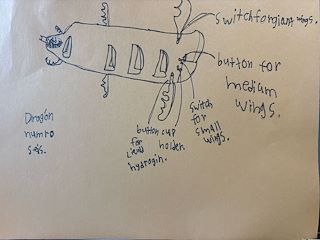 switch for giant wings.
button for
medium
wings.
Dragon
numro
seis.
button
for
liuid
hydrogin.
cup
holder.
switch
for
small
wings.